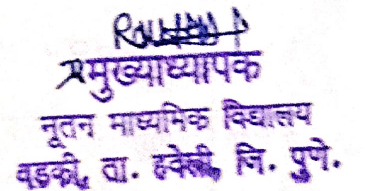 मुख्याध्यापक
नूतन माध्यमिक विद्यालय
वडकी, ता. हवेली, जि. पुणे.